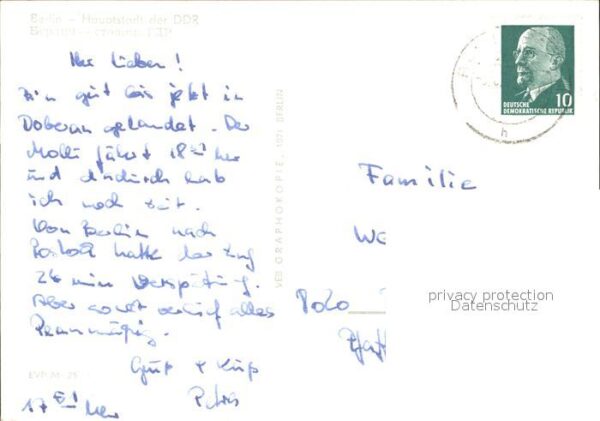 Berlin – Hauptstadt der DDR
Берлин – столица ГДР
Ihr Lieben!
Bin gut bis jetzt in
Doberan gelandet. Der
Molli fährt 18⁵¹ her
und dadurch hab
ich noch Zeit.
Von Berlin nach
Rostock hatte der Zug
26 min Verspätung.
Aber sonst verlief alles
Planmäßig.
Gruß + Kuß
Petra
17 Uhr
EVP M -,25
VEB GRAPHOKOPIE, 1071 BERLIN
DEUTSCHE
DEMOKRATISCHE REPUBLIK
10
h
Familie
We
7020
privacy protection
Datenschutz